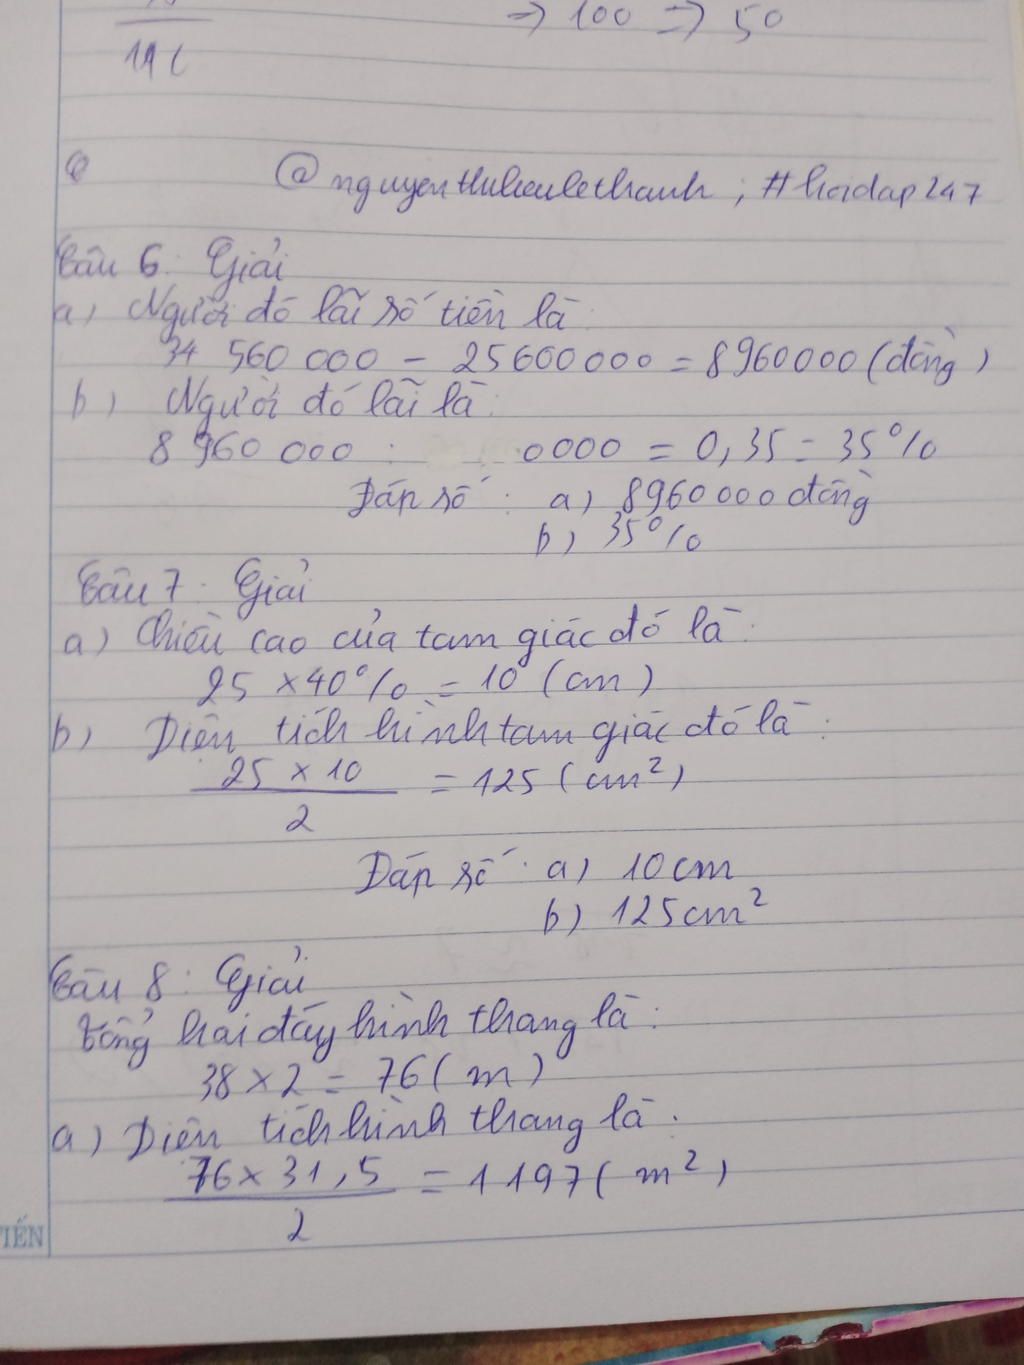 19(
⇒ 100 ⇒ 50
@nguyenthulieulethanh ; #hoidap247
Câu 6: Giải
a) Người đó lãi số tiền là:
34 560 000 - 25600000 = 8960000 (đồng)
b) Người đó lãi là:
8 960 000 : 0000 = 0,35 = 35%
Đáp số: a) 8960000 đồng
b) 35%
Câu 7: Giải
a) Chiều cao của tam giác đó là:
25 × 40% = 10 (cm)
b) Diện tích hình tam giác đó là:
25 × 10 = 125 (cm²)
2
Đáp số: a) 10cm
b) 125cm²
Câu 8: Giải
Tổng hai đáy hình thang là:
38 × 2 = 76 (m)
a) Diện tích hình thang là:
76 × 31,5 = 1197 (m²)
2
TIẾN